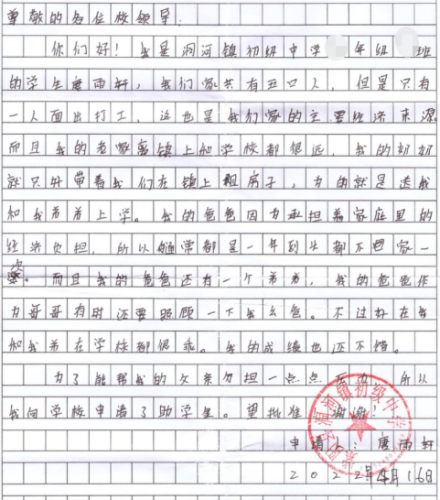 尊敬的各位校领导:
你们好!我是洞河镇初级中学 年级 班
的学生唐雨轩,我们家共有五口人,但是只有
一人面出打工,这也是我们家的主要经济来源。
而且我的老家离镇上和学校都很远,我的奶奶
就只好带着我们在镇上租房子,为的就是送我
和我弟弟上学。我的爸爸因为承担着家庭里的
经济负担,所以通常都是一年到头都不回家一
次。而且我的爸爸还有一个弟弟,我的爸爸作
为哥哥有时还要照顾一下我幺爸。不过好在我
和我弟在学校都很乖。我的成绩也还不错。
为了能帮我的父亲分担一点点 所以
我向学校申请了助学生。望批准 谢谢!
申请人:唐雨轩
2022年4月16日
洞河镇初级中学